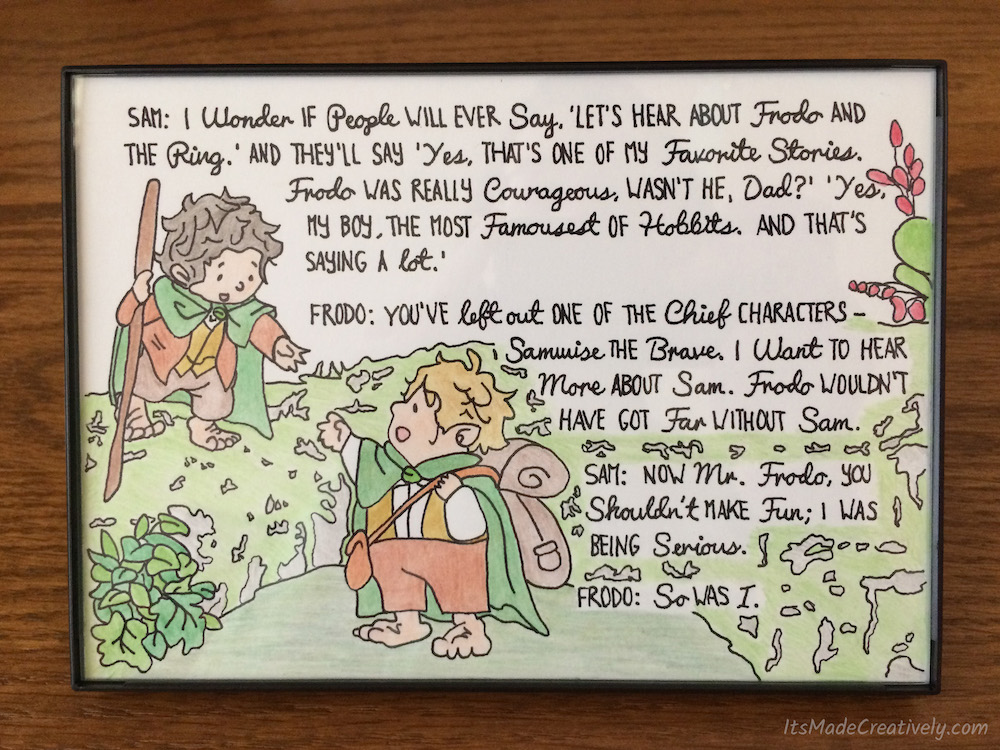 SAM: I Wonder IF People WILL EVER Say, 'LET'S HEAR ABOUT Frodo AND
THE Ring.' AND THEY'LL SAY 'Yes, THAT'S ONE OF MY Favorite Stories.
Frodo WAS REALLY Courageous, WASN'T HE, Dad?' 'Yes,
MY BOY, THE MOST Famousest OF Hobbits. AND THAT'S
SAYING A lot.'
FRODO: YOU'VE left out ONE OF THE Chief CHARACTERS –
Samwise THE Brave. I Want TO HEAR
More ABOUT Sam. Frodo WOULDN'T
HAVE GOT Far WITHOUT Sam.
SAM: NOW Mr. Frodo, YOU
Shouldn't MAKE Fun; I WAS
BEING Serious.
FRODO: So WAS I.
ItsMadeCreatively.com